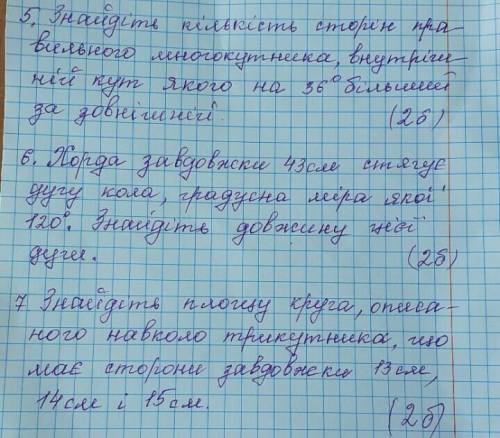 5. Знайдіть кількість сторін пра-
вильного многокутника, внутріш-
ній кут якого на 36° більший
за зовнішній. (2б)
6. Хорда завдовжки 43см стягує
дугу кола, градусна міра якої
120°. Знайдіть довжину цієї
дуги. (2б)
7 Знайдіть площу круга, описа-
ного навколо трикутника, що
має сторони завдовжки 13см,
14см і 15см. (2б)